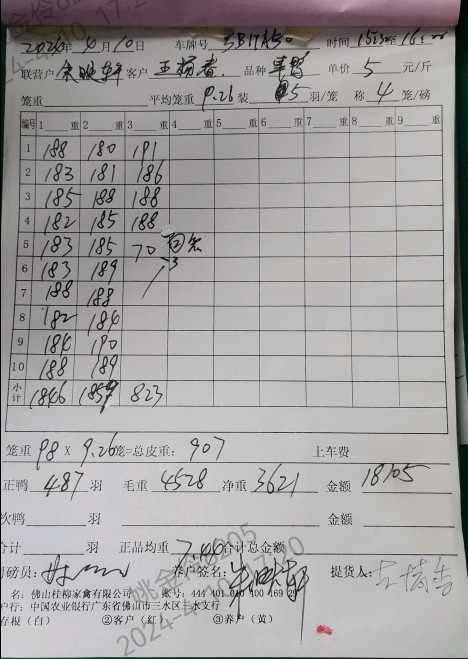 2024年4月10日 车牌号 时间 1523至16
联营户 客户 王 品种 单价 5 元/斤
笼重 平均笼重 9.26 装 5 羽/笼 称 4 笼/磅
编号 1 重 2 重 3 重 4 重 5 重 6 重 7 重 8 重 9 重
1 188 180 191
2 183 181 186
3 185 188 188
4 182 185 188
5 183 185 70
6 183 189
7 188 188
8 182 184
9 184 190
10 188 189
小计 1846 1859 823
笼重 98 X 9.26 笼=总皮重: 907 上车费
正鸭 487 羽 毛重 4528 净重 3621 金额 18105
次鸭 羽 金额
合计 羽 正品均重 7.46 合计总金额
司磅员: 养户签名: 提货人:
名: 佛山桂柳家禽有限公司 账号: 444 401 040 400 169 2
户行: 中国农业银行广东省佛山市三水区丰水支行
存根(白) ②客户(红) ③养户(黄)